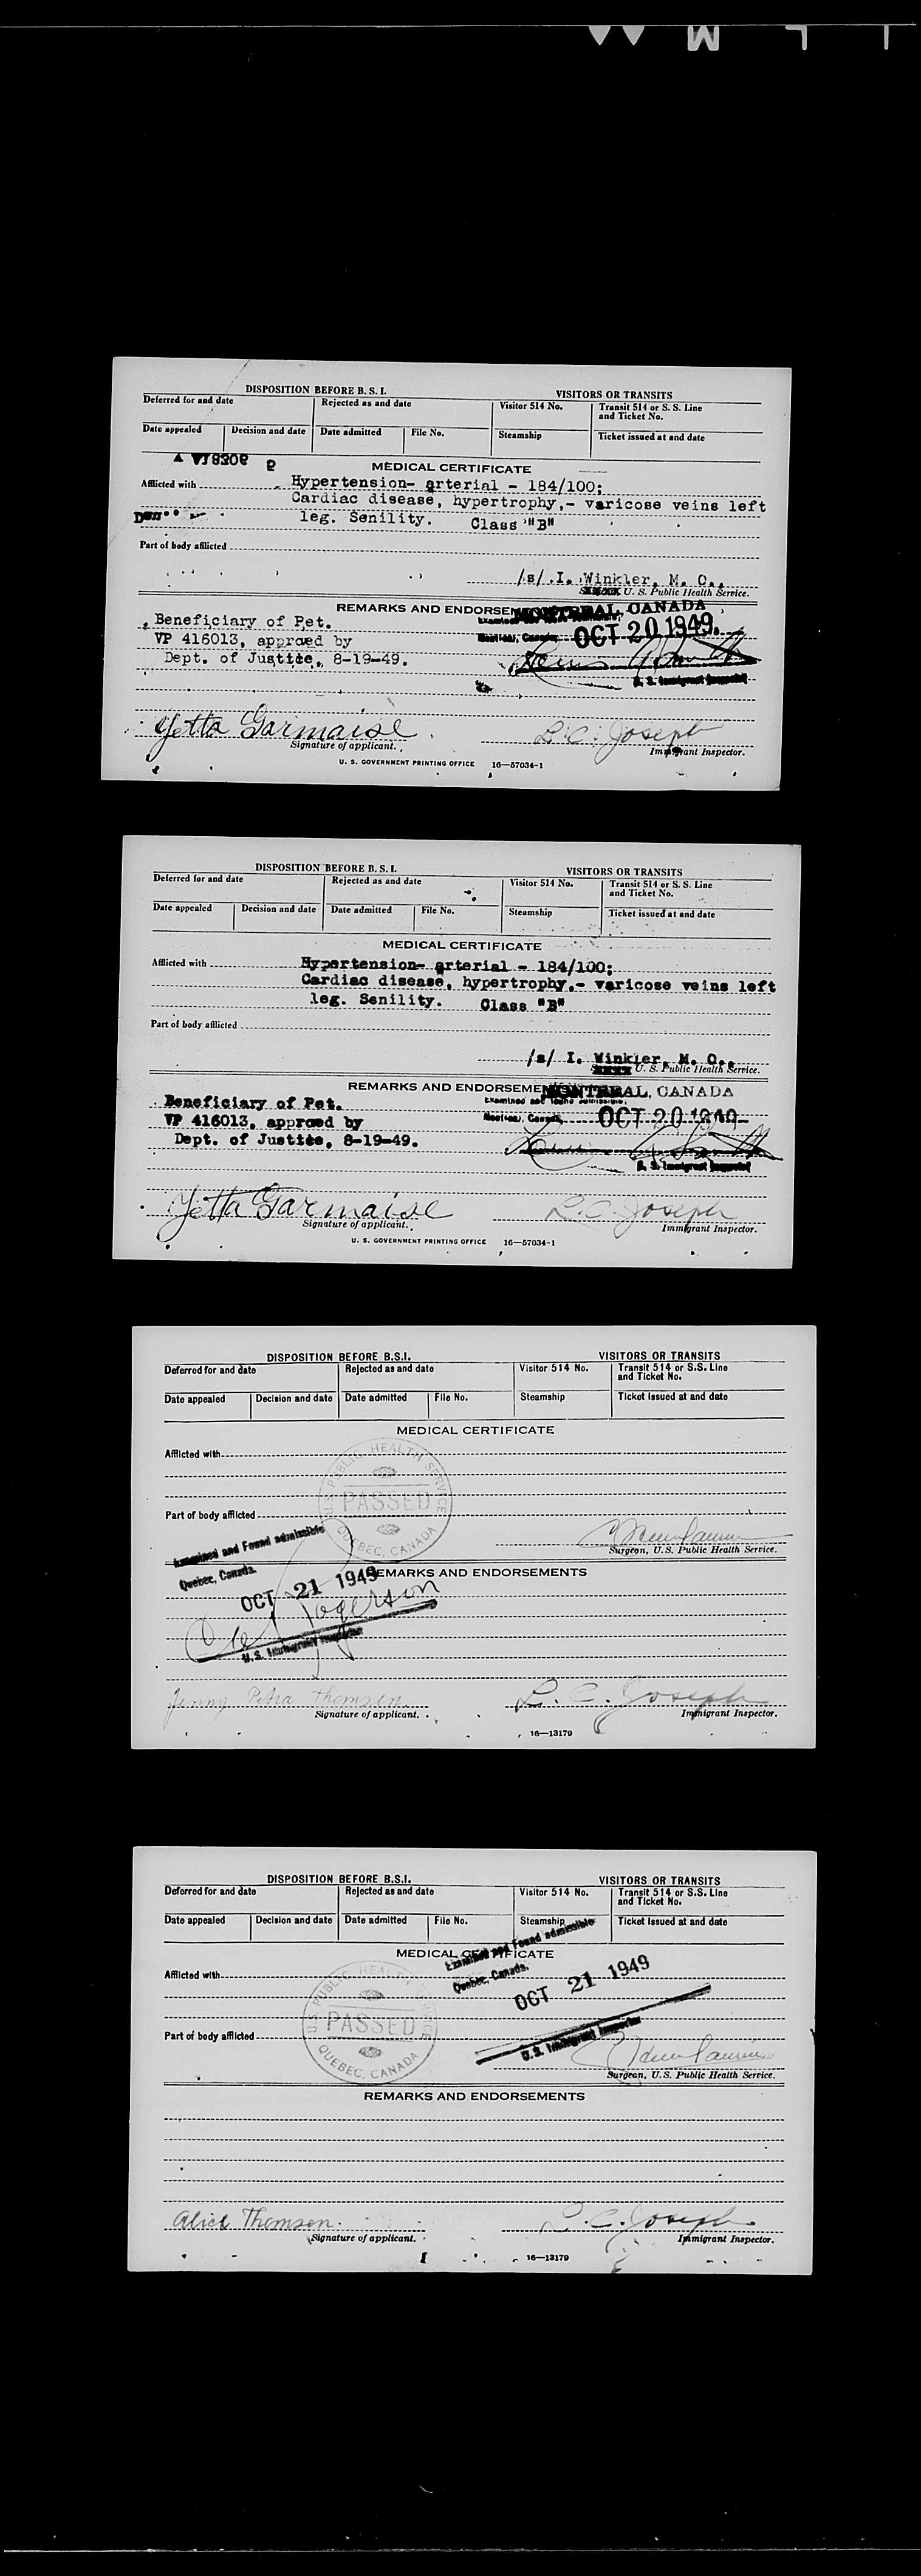 DISPOSITION BEFORE B. S. I. VISITORS OR TRANSITS
Deferred for and date Rejected as and date Visitor 514 No. Transit 514 or S. S. Line
and Ticket No.
Date appealed Decision and date Date admitted File No. Steamship Ticket issued at and date
MEDICAL CERTIFICATE
Afflicted with Hypertension- arterial - 184/100;
Cardiac disease, hypertrophy,- varicose veins left
leg. Senility. Class "B"
Part of body afflicted
/s/ I. Winkler, M. O.,
U. S. Public Health Service.
REMARKS AND ENDORSEM
MONTREAL, CANADA
Beneficiary of Pet.
Montreal, Canada. OCT 20 1949
VP 416013, approed by
Dept. of Justite, 8-19-49.
U. S. Immigrant Inspector
Yetta Garmaise L. C. Joseph
Signature of applicant. Immigrant Inspector.
U. S. GOVERNMENT PRINTING OFFICE 16—57034-1
DISPOSITION BEFORE B. S. I. VISITORS OR TRANSITS
Deferred for and date Rejected as and date Visitor 514 No. Transit 514 or S. S. Line
and Ticket No.
Date appealed Decision and date Date admitted File No. Steamship Ticket issued at and date
MEDICAL CERTIFICATE
Afflicted with Hypertension- arterial - 184/100;
Cardiac disease, hypertrophy,- varicose veins left
leg. Senility. Class "B"
Part of body afflicted
/s/ I. Winkler, M. O.,
U. S. Public Health Service.
REMARKS AND ENDORSEME
MONTREAL, CANADA
Examined and found admissible,
Beneficiary of Pet.
Montreal, Canada, OCT 20 1949
VP 416013, approed by
Dept. of Justite, 8-19-49.
U. S. Immigrant Inspector
Yetta Garmaise L. C. Joseph
Signature of applicant. Immigrant Inspector.
U. S. GOVERNMENT PRINTING OFFICE 16—57034-1
DISPOSITION BEFORE B.S.I. VISITORS OR TRANSITS
Deferred for and date Rejected as and date Visitor 514 No. Transit 514 or S.S. Line
and Ticket No.
Date appealed Decision and date Date admitted File No. Steamship Ticket issued at and date
MEDICAL CERTIFICATE
Afflicted with
U.S. PUBLIC HEALTH SERVICE
PASSED
QUEBEC, CANADA
Part of body afflicted
Surgeon, U.S. Public Health Service.
Examined and Found admissible
Quebec, Canada.
OCT 21 1949
REMARKS AND ENDORSEMENTS
U.S. Immigrant Inspector
Jenny Petra Thomsen L. C. Joseph
Signature of applicant. Immigrant Inspector.
16—13179
DISPOSITION BEFORE B.S.I. VISITORS OR TRANSITS
Deferred for and date Rejected as and date Visitor 514 No. Transit 514 or S.S. Line
and Ticket No.
Date appealed Decision and date Date admitted File No. Steamship Ticket issued at and date
MEDICAL CERTIFICATE
Examined and Found admissible
Quebec, Canada.
OCT 21 1949
Afflicted with
U.S. PUBLIC HEALTH SERVICE
PASSED
QUEBEC, CANADA
Part of body afflicted
U.S. Immigrant Inspector
Surgeon, U.S. Public Health Service.
REMARKS AND ENDORSEMENTS
Alice Thomsen. L. C. Joseph
Signature of applicant. Immigrant Inspector.
16—13179